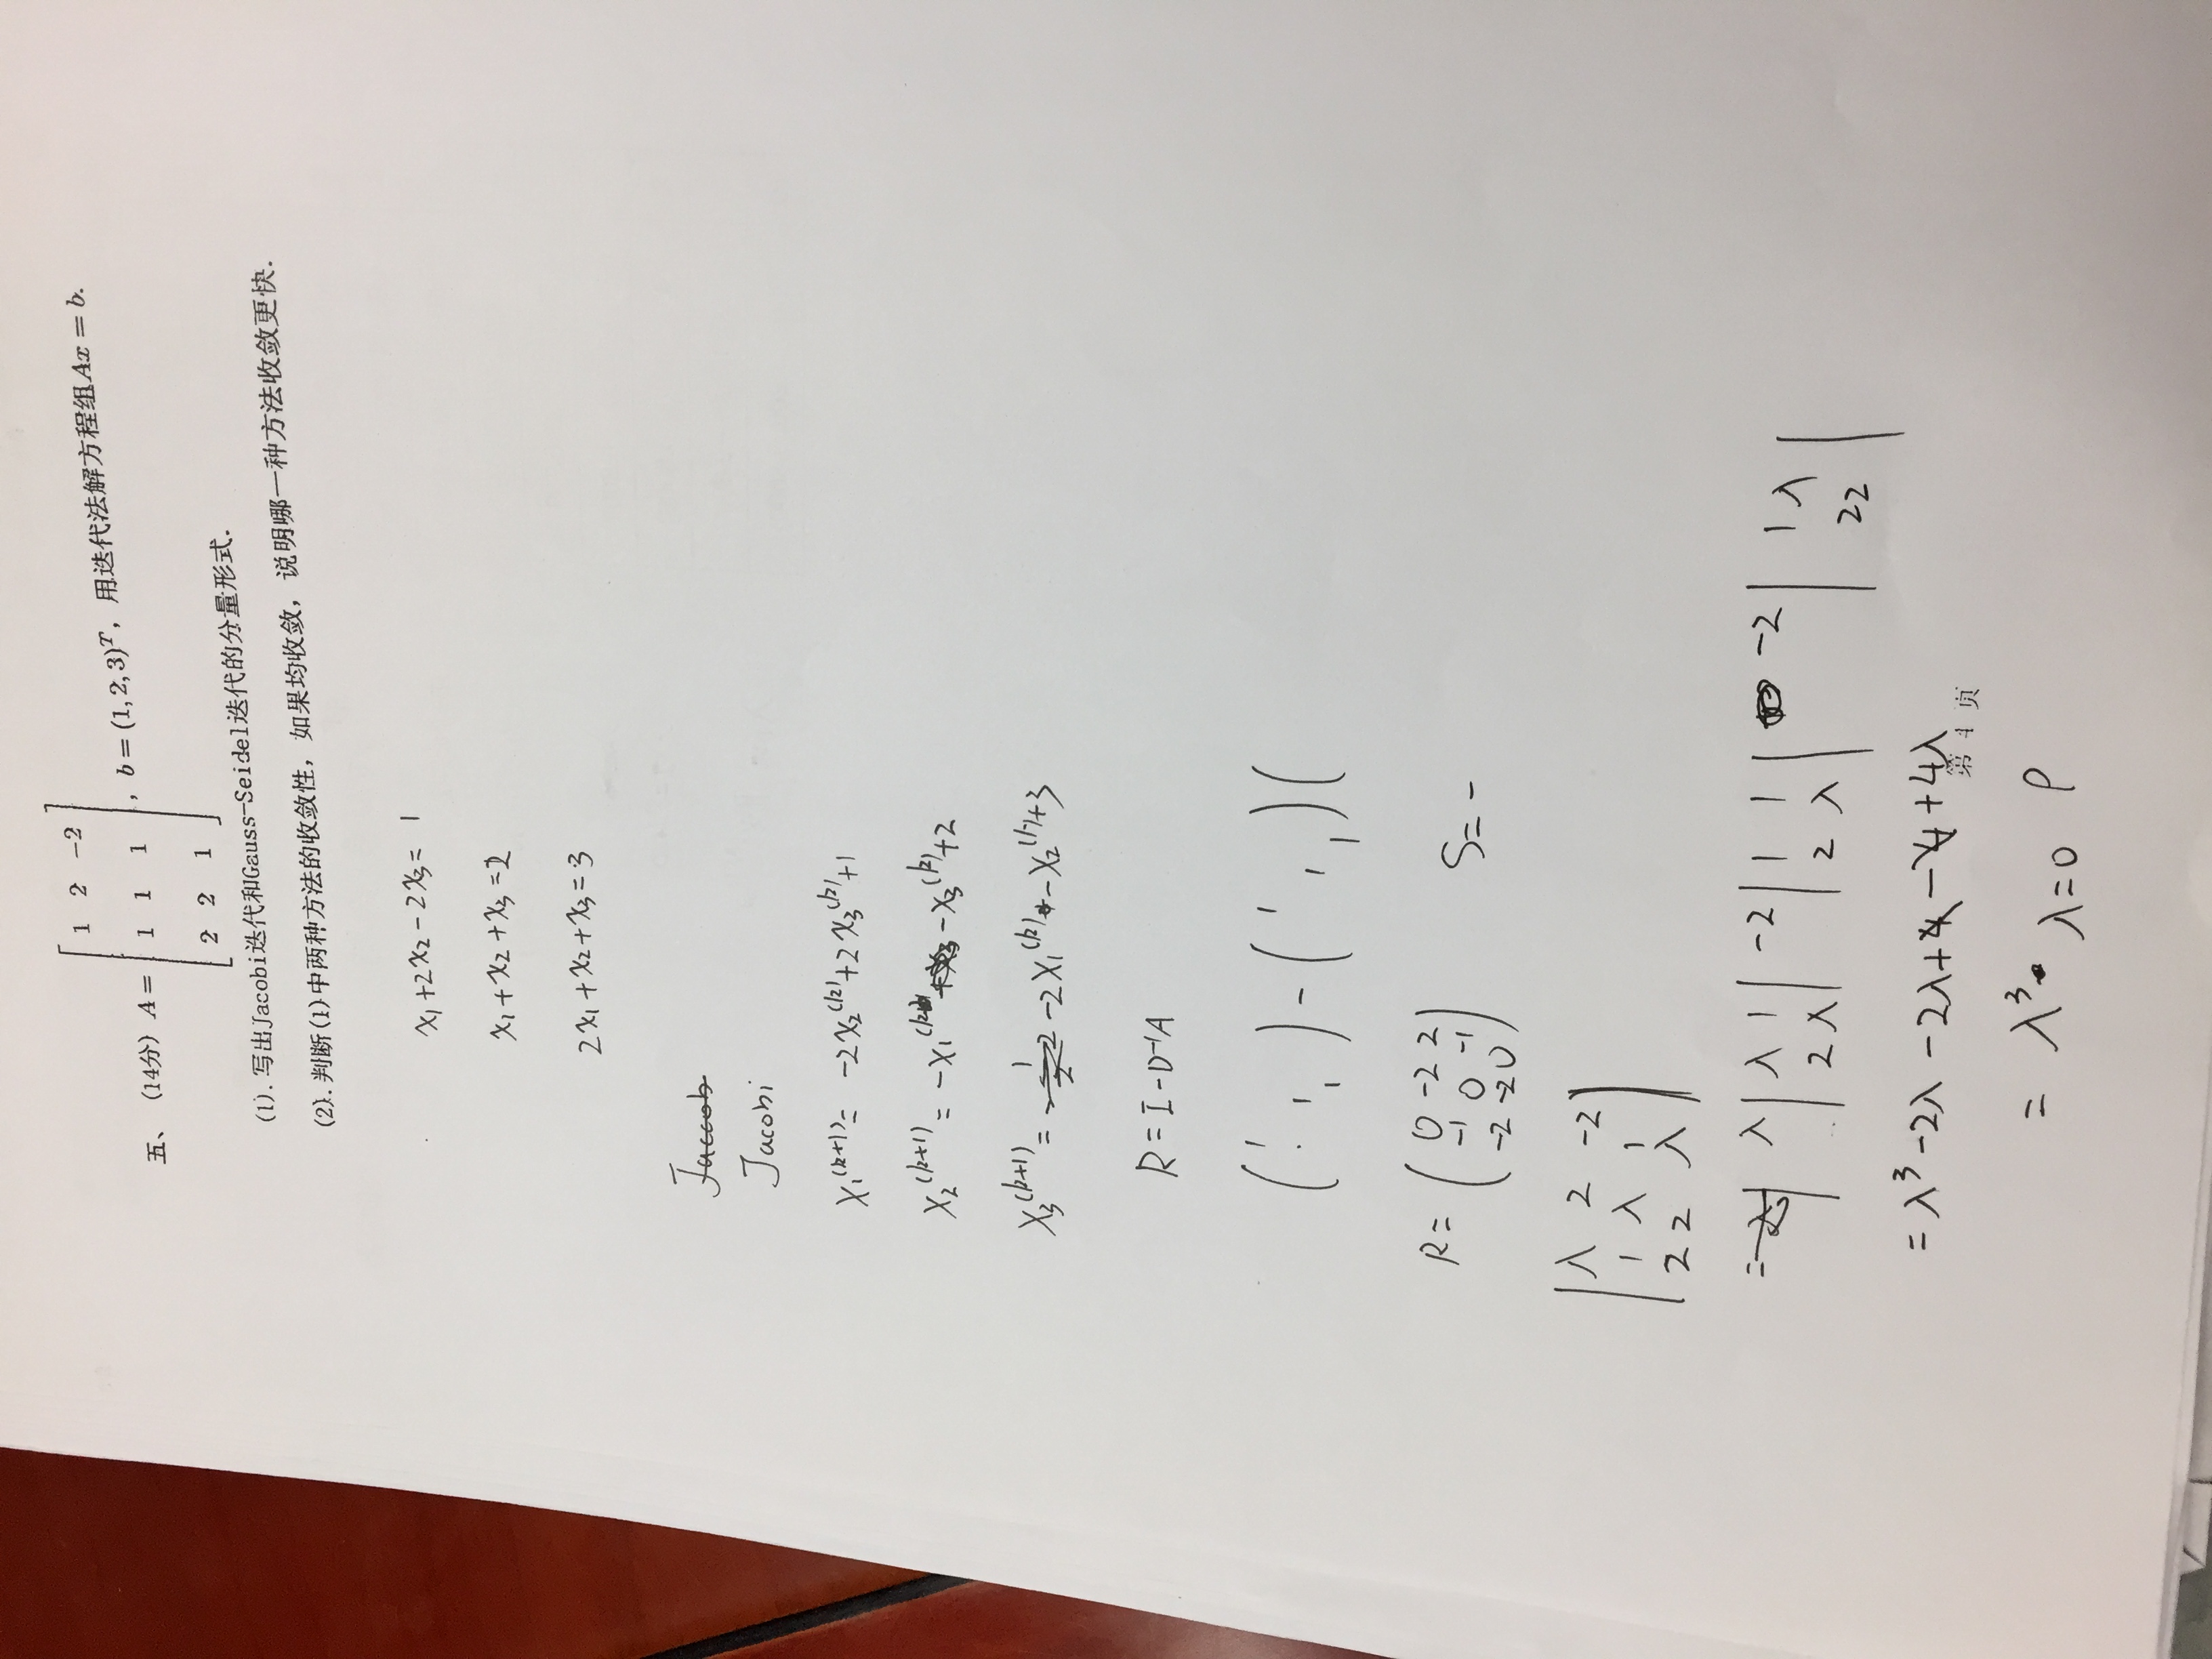 五、(14分) A = [ 1 2 −2 ; 1 1 1 ; 2 2 1 ], b = (1, 2, 3)^T, 用迭代法解方程组Ax = b.
(1). 写出Jacobi迭代和Gauss-Seidel迭代的分量形式.
(2). 判断(1)中两种方法的收敛性, 如果均收敛, 说明哪一种方法收敛更快.
x₁+2x₂−2x₃= 1
x₁+x₂+x₃=2
2x₁+x₂+x₃=3
Jaccob
Jacobi
x₁^(k+1)= −2x₂^(k)+2x₃^(k)+1
x₂^(k+1)= −x₁^(k) −x₃^(k)+2
x₃^(k+1)= −2x₁^(k) −x₂^(k)+3
R=I−D⁻¹A
( 1 1 1 ) − ( 1 1 1 ) (
R= ( 0 −2 2 ; −1 0 −1 ; −2 −2 0 ) S= −
| λ 2 −2 ; 1 λ 1 ; 2 2 λ |
= λ | λ 1 ; 2 λ | −2 | 1 1 ; 2 λ | −2 | 1 λ ; 2 2 |
= λ³−2λ −2λ+4 −4 +4λ
第 4 页
= λ³ λ=0 ρ